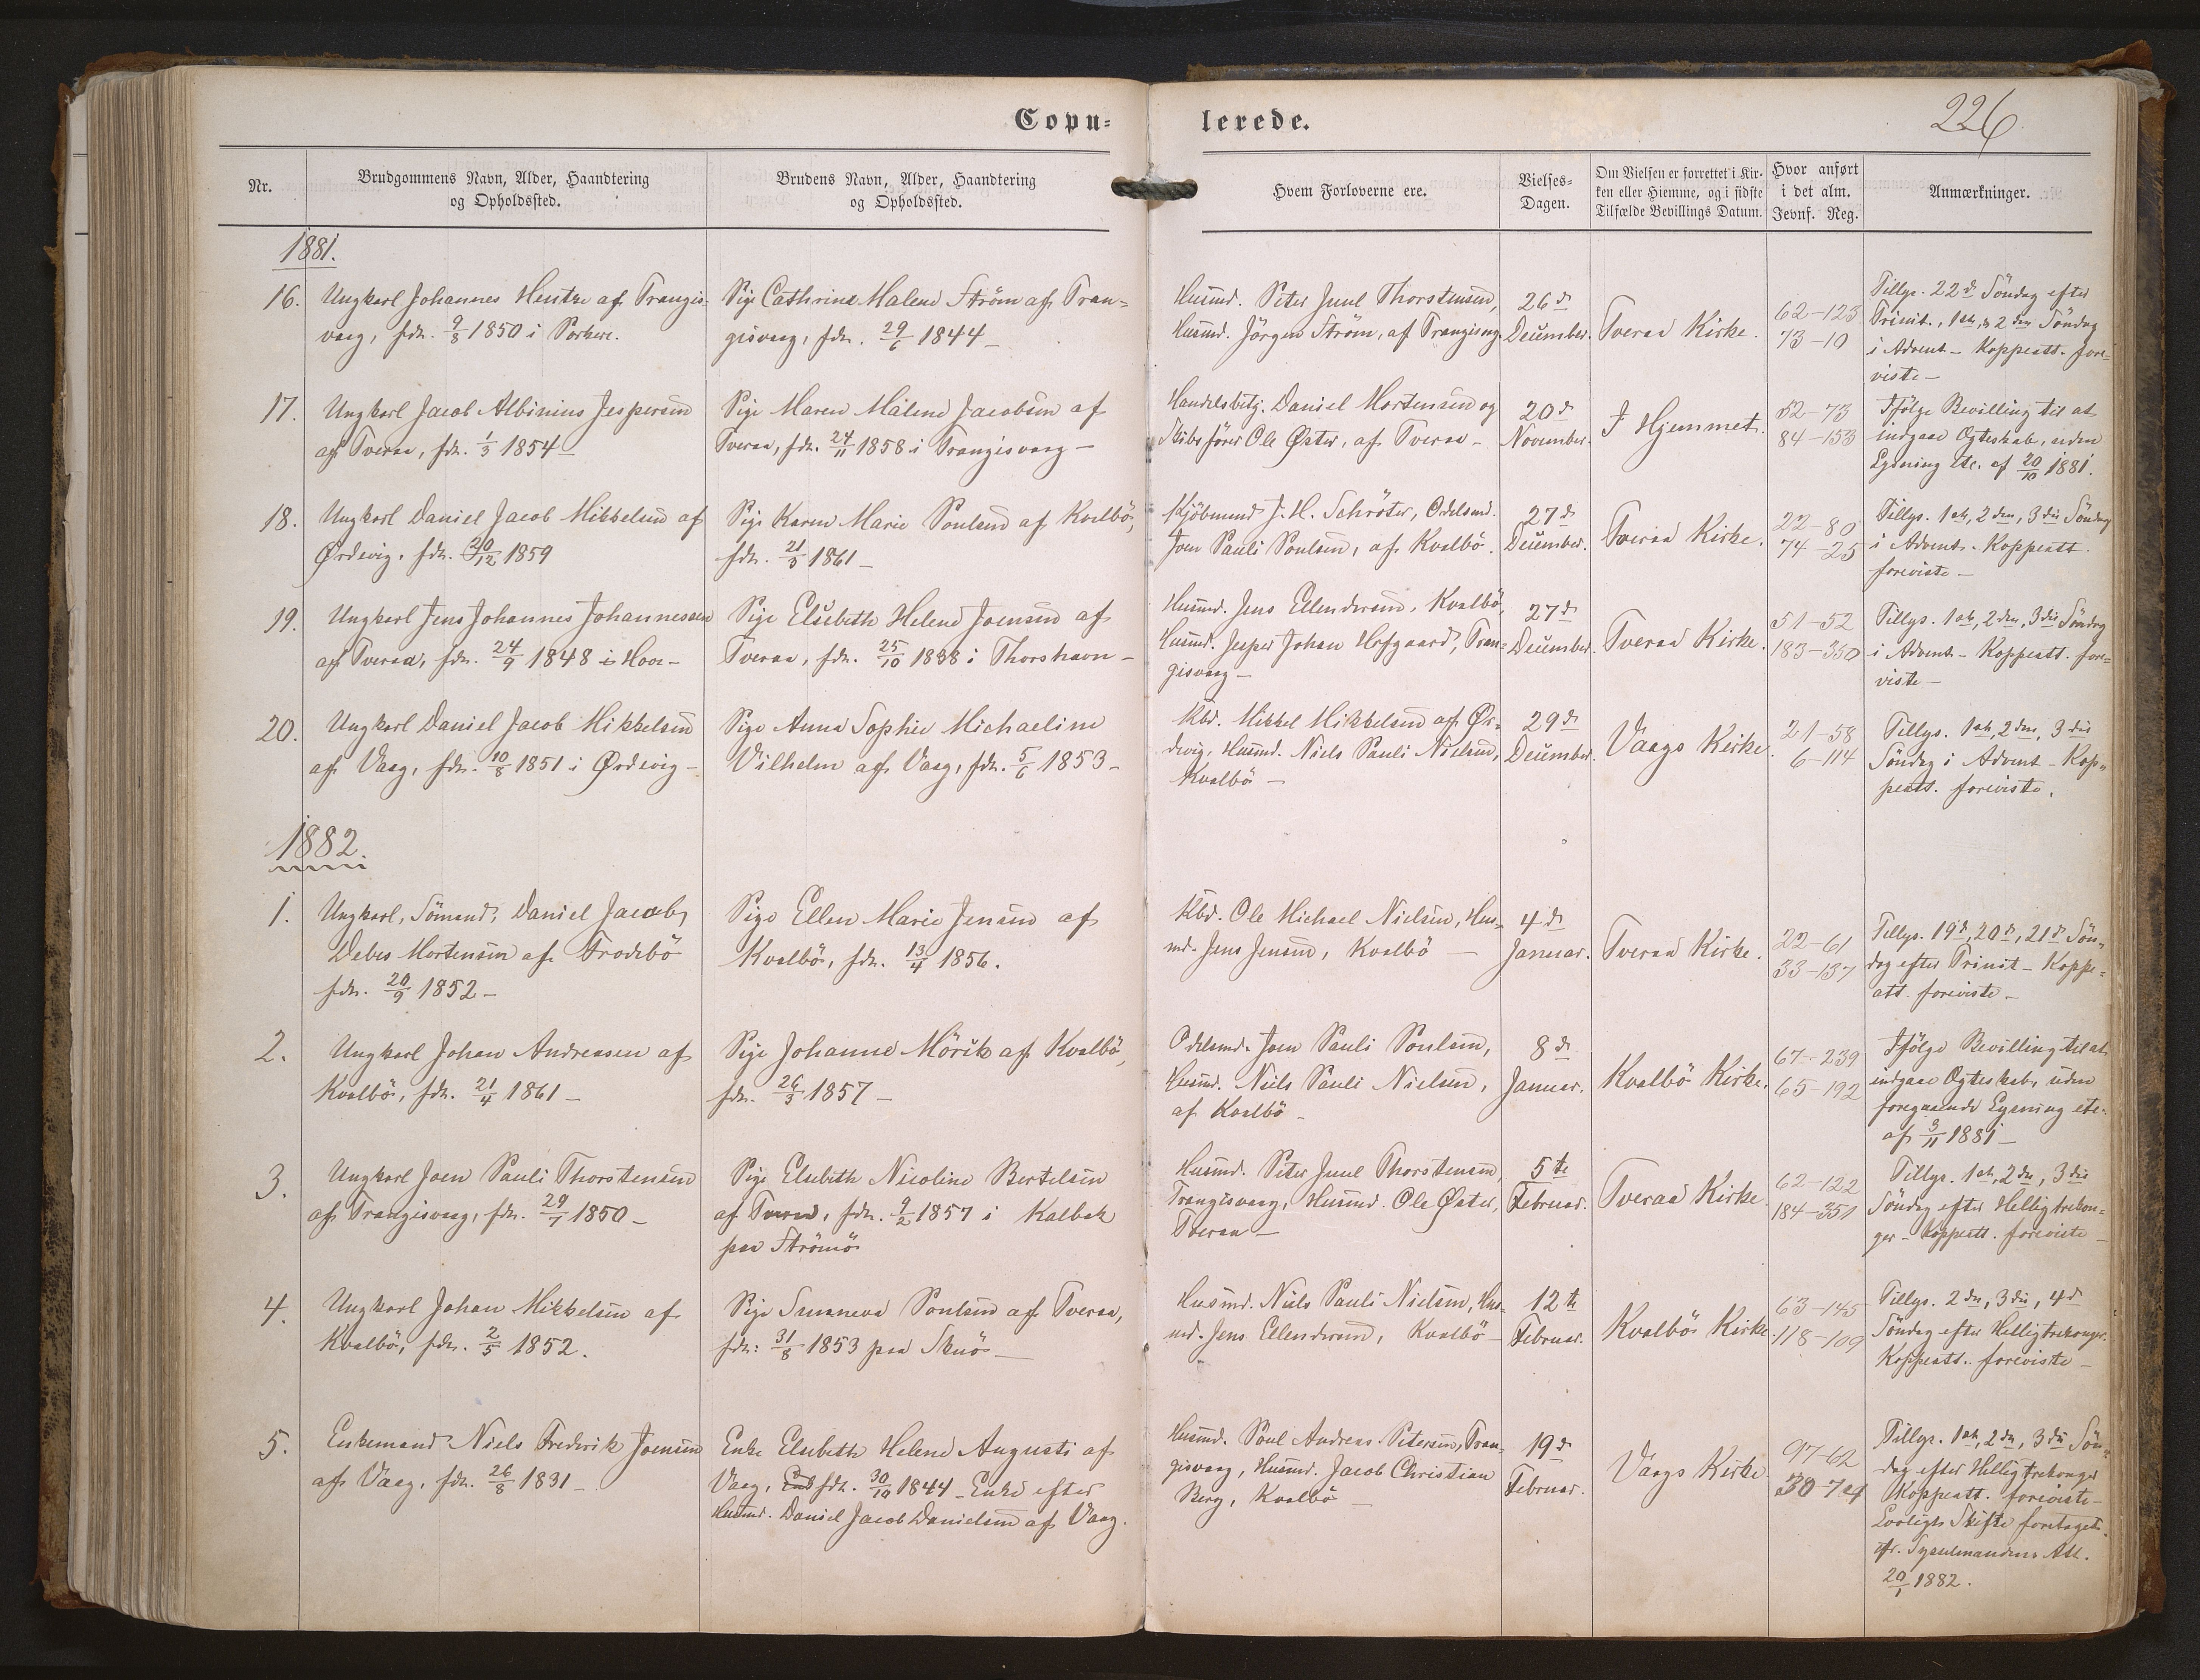 Copu-
lerede.
226
Nr.
Brudgommens Navn, Alder, Haandtering
og Opholdssted.
Brudens Navn, Alder, Haandtering
og Opholdssted.
Hvem Forloverne ere.
Vielses-
Dagen.
Om Vielsen er forrettet i Kir-
ken eller Hjemme, og i sidste
Tilfælde Bevillings Datum.
Hvor anført
i det alm.
Jevnf. Reg.
Anmærkninger.
1881.
16.
Ungkarl Johannes Hentze af Trangis-
vaag, fdt. 9/8 1850 i Porkere.
Pige Cathrine Malene Ström af Tran-
gisvaag, fdt. 29/6 1844 –
Husmd. Peter Juul Thorstensen,
Husmd. Jörgen Ström, af Trangisvg.
26d
December.
Tveraa Kirke.
62–125
73–10
Tillys. 22d Söndag efter
Trinit., 1ste, og 2den Söndag
i Advent – Koppeatt. fore-
viste –
17.
Ungkarl Jacob Albinius Jespersen
af Tveraa, fdt. 1/3 1854 –
Pige Maren Malene Jacobsen af
Tveraa, fdt. 24/11 1858 i Trangisvaag –
Handelsbetj. Daniel Mortensen og
Skibsförer Ole Øster, af Tveraa –
20d
November.
I Hjemmet.
52–73
84–153
Ifölge Bevilling til at
indgaae Ægteskab, uden
Lysning etc. af 20/10 1881.
18.
Ungkarl Daniel Jacob Mikkelsen af
Ørdevig, fdt. 20/12 1859
Pige Karen Marie Poulsen af Kvalbö,
fdt. 21/5 1861 –
Kjöbmand J. H. Schröter, Odelsmd.
Joen Pauli Poulsen, af Kvalbö.
27d
December.
Tveraa Kirke.
22–80
74–25
Tillys. 1ste, 2den, 3die Söndag
i Advent – Koppeatt.
foreviste –
19.
Ungkarl Jens Johannes Johannessen
af Tveraa, fdt. 24/9 1848 i Hov –
Pige Elsebeth Helene Joensen af
Tveraa, fdt. 25/10 1838 i Thorshavn –
Husmd. Jens Ellendersen, Kvalbö,
Husmd. Jesper Johan Hofgaard, Tran-
gisvaag –
27d
December.
Tveraa Kirke.
51–52
183–350
Tillys. 1ste, 2den, 3die Söndag
i Advent – Koppeatt. fore-
viste –
20.
Ungkarl Daniel Jacob Mikkelsen
af Vaag, fdt. 10/8 1851 i Ørdevig –
Pige Anna Sophie Michaeline
Vilhelm af Vaag, fdt. 5/6 1853 –
Kbd. Mikkel Mikkelsen af Ør-
devig, Husmd. Niels Pauli Nielsen,
Kvalbö –
29d
December.
Vaags Kirke.
21–58
6–114
Tillys. 1ste, 2den, 3die
Söndag i Advent – Kop-
peatt. foreviste.
1882.
1.
Ungkarl, Sömand, Daniel Jacob
Debes Mortensen af Frodebö
fdt. 20/9 1852 –
Pige Ellen Marie Jensen af
Kvalbö, fdt. 13/4 1856.
Kbd. Ole Michael Nielsen, Hus-
md. Jens Jensen, Kvalbö –
4d
Januar.
Tveraa Kirke.
22–61
33–137
Tillys. 19d, 20d, 21d Sön-
dag efter Trinit – Koppe-
att. foreviste –
2.
Ungkarl Johan Andreasen af
Kvalbö, fdt. 21/4 1861 –
Pige Johanne Mörik af Kvalbö,
fdt. 26/3 1857 –
Odelsmd. Joen Pauli Poulsen,
Husmd. Niels Pauli Nielsen,
af Kvalbö –
8d
Januar.
Kvalbö Kirke.
67–239
65–192
Ifölge Bevilling til at
indgaae Ægteskab, uden
foregaaende Lysning etc.
af 3/11 1881 –
3.
Ungkarl Joen Pauli Thorstensen
af Trangisvaag, fdt. 29/7 1850 –
Pige Elsebeth Nicoline Bertelsen
af Tveraa, fdt. 9/2 1857 i Kalbak
paa Strömö
Husmd. Peter Juul Thorstensen,
Trangisvaag, Husmd. Ole Øster,
Tveraa –
5te
Februar.
Tveraa Kirke.
62–122
184–351
Tillys. 1ste, 2den, 3die
Söndag efter Helligtrekon-
ger – Koppeatt. foreviste –
4.
Ungkarl Johan Mikkelsen af
Kvalbö, fdt. 2/5 1852.
Pige Sunneva Poulsen af Tveraa,
fdt. 31/8 1853 paa Skuö –
Husmd. Niels Pauli Nielsen, Hus-
md. Jens Ellendersen, Kvalbö –
12te
Februar.
Kvalbö Kirke.
63–145
118–109
Tillys. 2den, 3die, 4d
Söndag efter Helligtrekonger.
Koppeatt. foreviste –
5.
Enkemand Niels Frederik Joensen
af Vaag, fdt. 26/8 1831 –
Enke Elsebeth Helene Augusti af
Vaag, fdt. 30/10 1844 – Enke efter
Husmd. Daniel Jacob Danielsen af Vaag.
Husmd. Poul Andreas Petersen, Tran-
gisvaag, Husmd. Jacob Christian
Berg, Kvalbö –
19d
Februar.
Vaags Kirke.
97–62
30–74
Tillys. 1ste, 2den, 3die Sön-
dag efter Helligtrekonger
Koppeatt. foreviste –
Lovligt Skifte foretaget
cfr. Sysselmandens Att.
20/1 1882.